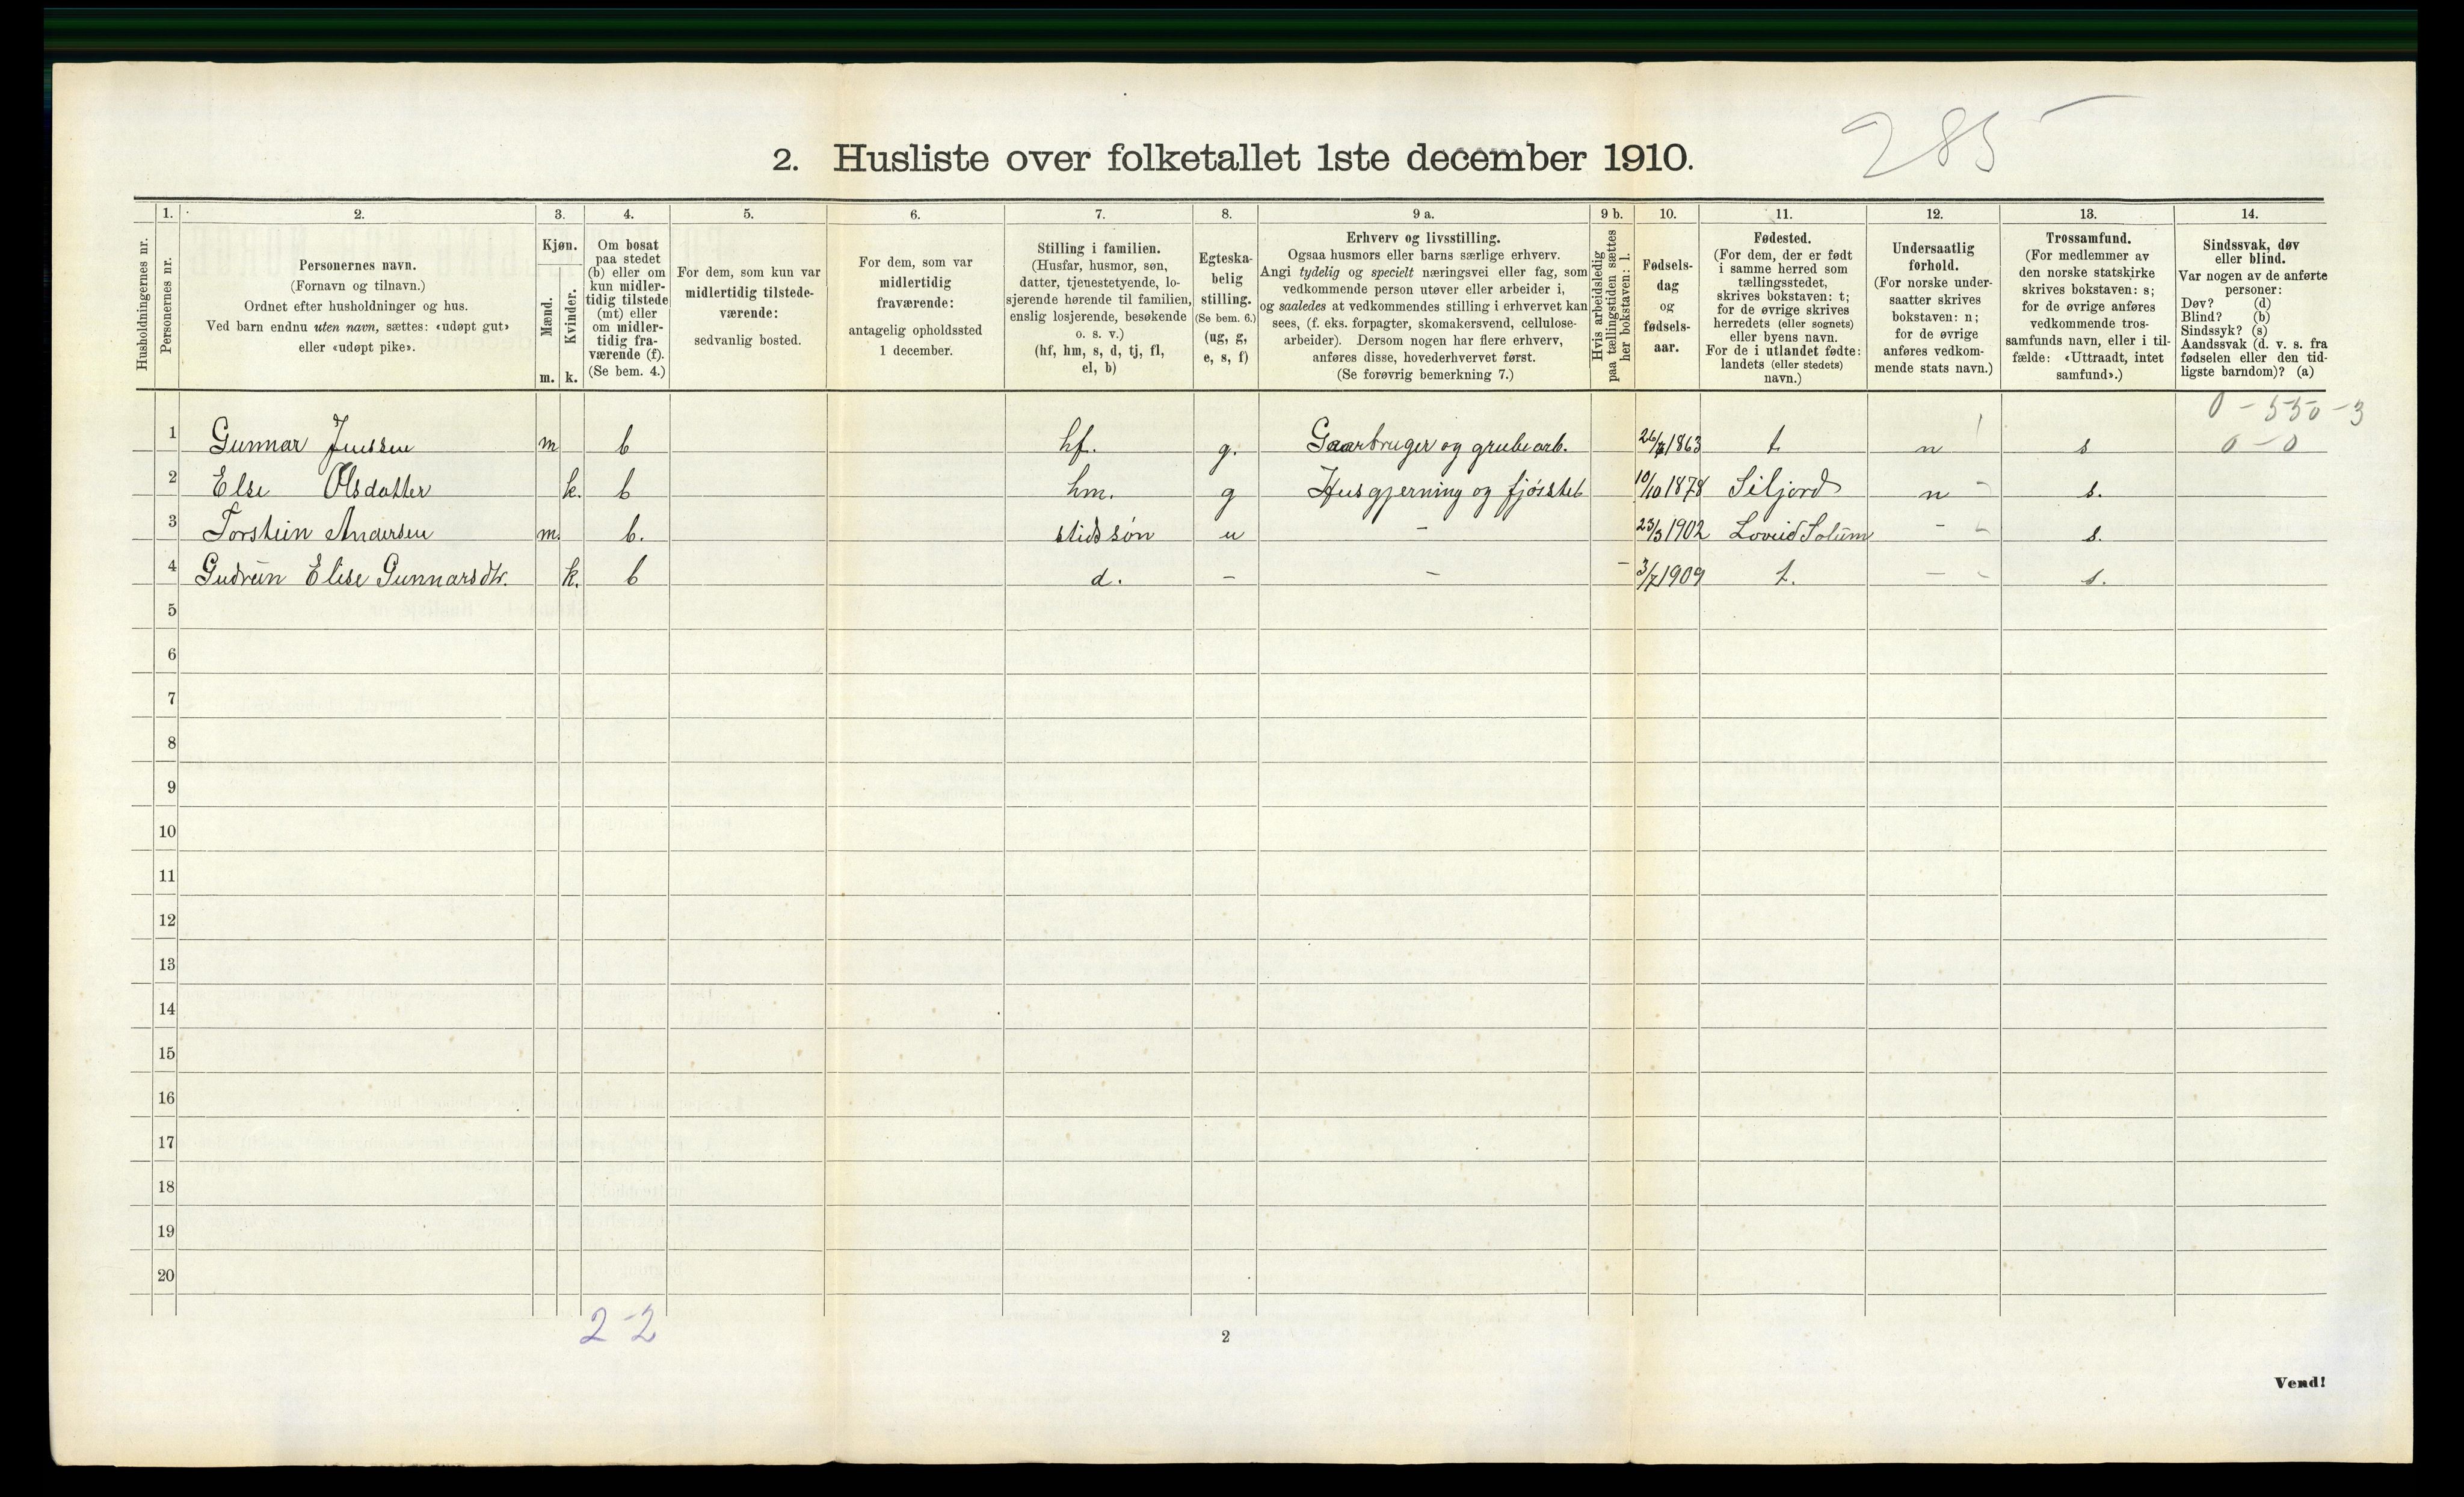 285
2. Husliste over folketallet 1ste december 1910.
1. 2. 3. 4. 5. 6. 7. 8. 9 a. 9 b. 10. 11. 12. 13. 14.
Husholdningernes nr.
Personernes nr.
Personernes navn.
(Fornavn og tilnavn.)
Ordnet efter husholdninger og hus.
Ved barn endnu uten navn, sættes: «udøpt gut»
eller «udøpt pike».
Kjøn.
Mænd.
Kvinder.
m. k.
Om bosat
paa stedet
(b) eller om
kun midler-
tidig tilstede
(mt) eller
om midler-
tidig fra-
værende (f).
(Se bem. 4.)
For dem, som kun var
midlertidig tilstede-
værende:
sedvanlig bosted.
For dem, som var
midlertidig
fraværende:
antagelig opholdssted
1 december.
Stilling i familien.
(Husfar, husmor, søn,
datter, tjenestetyende, lo-
sjerende hørende til familien,
enslig losjerende, besøkende
o. s. v.)
(hf, hm, s, d, tj, fl,
el, b)
Egteska-
belig
stilling.
(Se bem. 6.)
(ug, g,
e, s, f)
Erhverv og livsstilling.
Ogsaa husmors eller barns særlige erhverv.
Angi tydelig og specielt næringsvei eller fag, som
vedkommende person utøver eller arbeider i,
og saaledes at vedkommendes stilling i erhvervet kan
sees, (f. eks. forpagter, skomakersvend, cellulose-
arbeider). Dersom nogen har flere erhverv,
anføres disse, hovederhvervet først.
(Se forøvrig bemerkning 7.)
Hvis arbeidsledig
paa tællingstiden sættes
her bokstaven: l.
Fødsels-
dag
og
fødsels-
aar.
Fødested.
(For dem, der er født
i samme herred som
tællingsstedet,
skrives bokstaven: t;
for de øvrige skrives
herredets (eller sognets)
eller byens navn.
For de i utlandet fødte:
landets (eller stedets)
navn.)
Undersaatlig
forhold.
(For norske under-
saatter skrives
bokstaven: n;
for de øvrige
anføres vedkom-
mende stats navn.)
Trossamfund.
(For medlemmer av
den norske statskirke
skrives bokstaven: s;
for de øvrige anføres
vedkommende tros-
samfunds navn, eller i til-
fælde: «Uttraadt, intet
samfund».)
Sindssvak, døv
eller blind.
Var nogen av de anførte
personer:
Døv? (d)
Blind? (b)
Sindssyk? (s)
Aandssvak (d. v. s. fra
fødselen eller den tid-
ligste barndom)? (a)
0-550-3
1 Gunnar Jenssen m b hf. g. Gaarbruger og grubearb. 1863 t n s 0-0
2 Else Olsdatter k. b hm. g Husgjerning og fjøsstel 10/10 1878 Siljord n - s.
3 Torstein Andersen m. b. stidssøn u - 23/3 1902 Loveid Solum - - s.
4 Gudrun Elise Gunnarsdtr. k. b d. - - - 3/7 1909 t. - - s.
5
6
7
8
9
10
11
12
13
14
15
16
17
18
19
20
2-2
2
Vend!